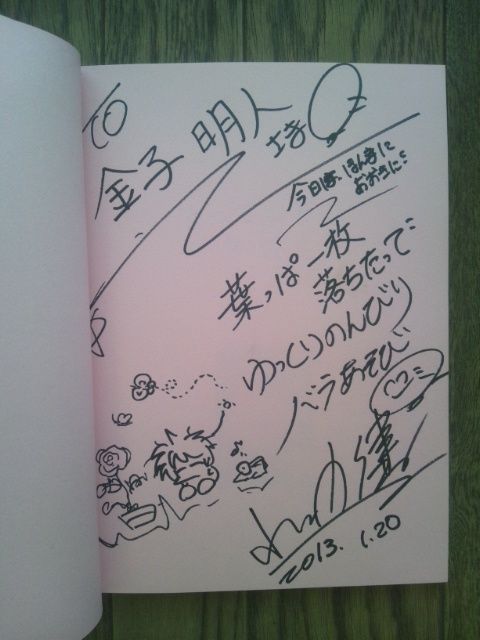 to
金子 明人
今日は、ほんまに
おおきに
葉っぱ一枚
落ちたって
ゆっくりのんびり
バラあそび
2013. 1.20